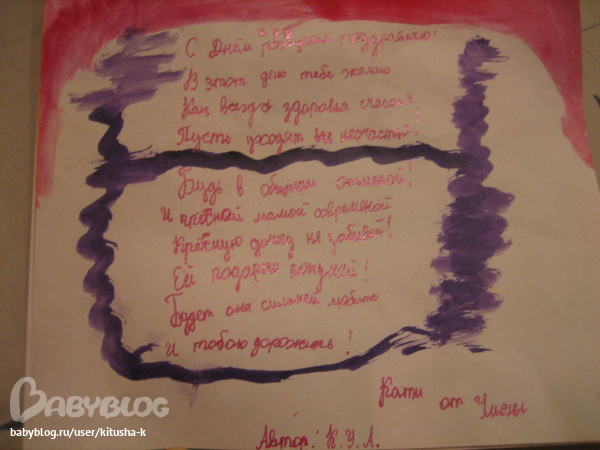 С Днём рождения поздравляю!
В этот день тебе желаю
Как всегда здоровья счастья!
Пусть уходят все несчастья!
Будь в общем отличной!
И крёстной мамой современой
Крёстную дочку не забывай!
Ей подарки покупай!
Будет она сильней любить
И тобою дорожить!
Кати от Ульяны
Автор: К.У.А.
BABYBLOG
babyblog.ru/user/kitusha-k